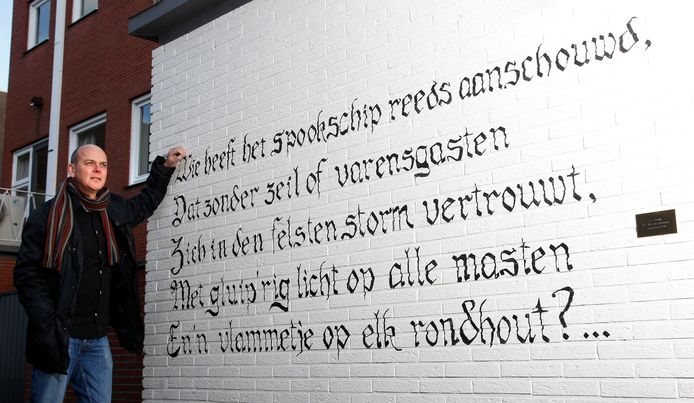 Wie heeft het spookschip reeds aanschouwd,
Dat zonder zeil of varensgasten
Zich in den felsten storm vertrouwt,
Met gluip'rig licht op alle masten
En 'n vlammetje op elk rondhout?...